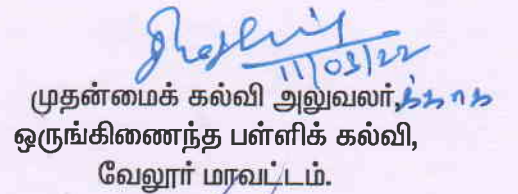 11/03/22
முதன்மைக் கல்வி அலுவலர்,க்காக
ஒருங்கிணைந்த பள்ளிக் கல்வி,
வேலூர் மாவட்டம்.